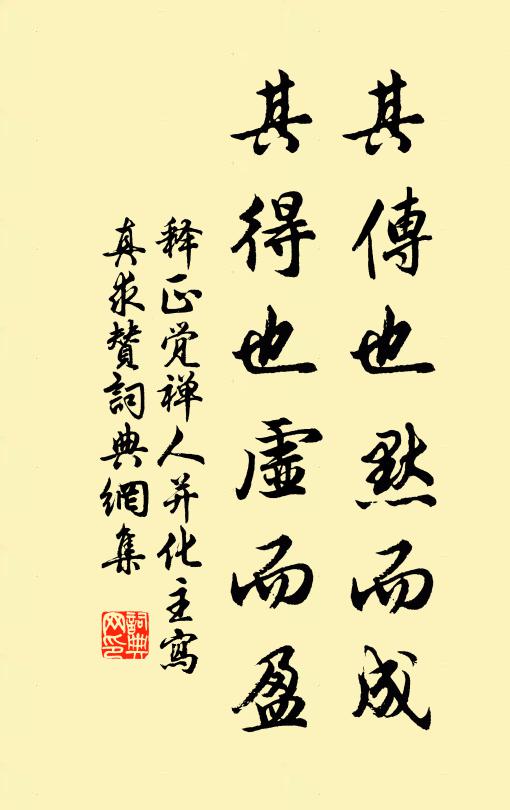 其傳也默而成
其得也虛而盈
释正觉禅人并化主寫
真求贊詞典網集
詞典
网印